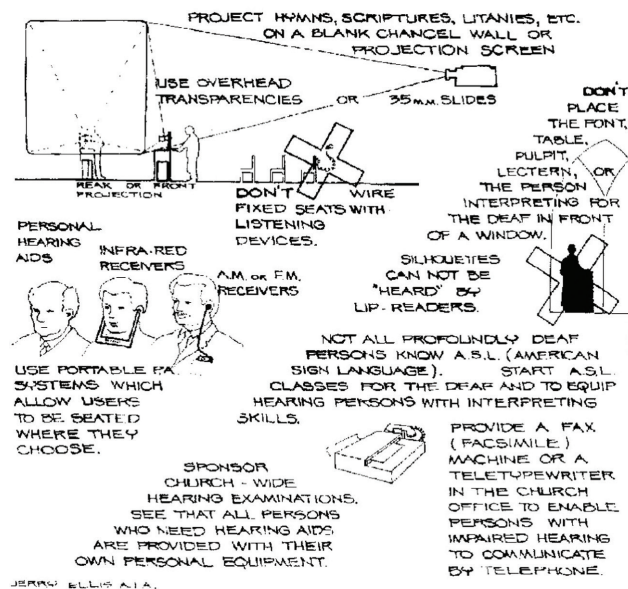 PROJECT HYMNS, SCRIPTURES, LITANIES, ETC.
ON A BLANK CHANCEL WALL OR
PROJECTION SCREEN
USE OVERHEAD
TRANSPARENCIES OR 35 M.M. SLIDES
REAR OR FRONT
PROJECTION
DON'T WIRE
FIXED SEATS WITH
LISTENING
DEVICES.
DON'T
PLACE
THE FONT,
TABLE,
PULPIT,
LECTERN, OR
THE PERSON
INTERPRETING FOR
THE DEAF IN FRONT
OF A WINDOW.
SILHOUETTES
CAN NOT BE
"HEARD" BY
LIP-READERS.
PERSONAL
HEARING
AIDS
INFRA-RED
RECEIVERS
A.M. OR F.M.
RECEIVERS
USE PORTABLE PA
SYSTEMS WHICH
ALLOW USERS
TO BE SEATED
WHERE THEY
CHOOSE.
NOT ALL PROFOUNDLY DEAF
PERSONS KNOW A.S.L. (AMERICAN
SIGN LANGUAGE). START A.S.L.
CLASSES FOR THE DEAF AND TO EQUIP
HEARING PERSONS WITH INTERPRETING
SKILLS.
SPONSOR
CHURCH - WIDE
HEARING EXAMINATIONS.
SEE THAT ALL PERSONS
WHO NEED HEARING AIDS
ARE PROVIDED WITH THEIR
OWN PERSONAL EQUIPMENT.
PROVIDE A FAX
(FACSIMILE)
MACHINE OR A
TELETYPEWRITER
IN THE CHURCH
OFFICE TO ENABLE
PERSONS WITH
IMPAIRED HEARING
TO COMMUNICATE
BY TELEPHONE.
JERRY ELLIS A.I.A.